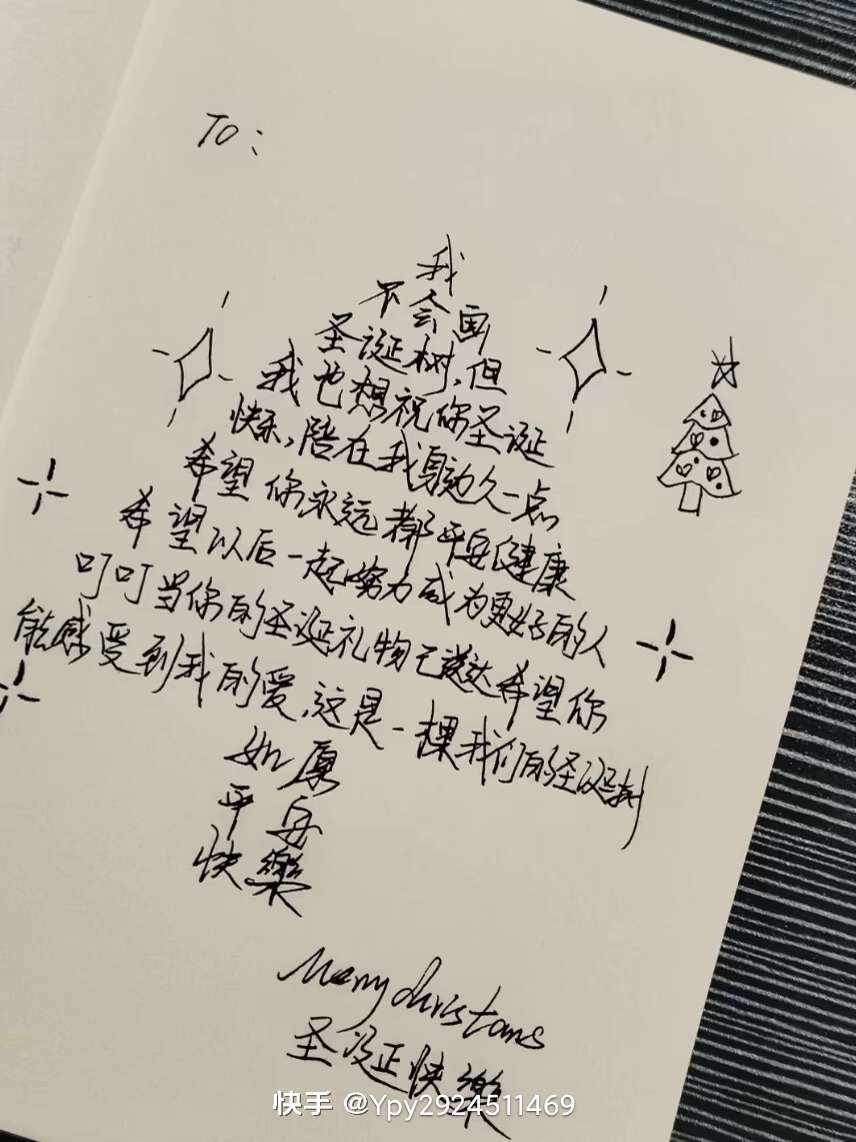 TO:
我
不会画
圣诞树,但
我也想祝你圣诞
快乐,陪在我身边久一点
希望你永远都平安健康
希望以后一起努力成为更好的人
叮叮当你的圣诞礼物已送达希望你
能感受到我的爱,这是一棵我们的圣诞树
如愿
平安
快樂
Merry christans
圣诞快樂
快手 @Ypy2924511469